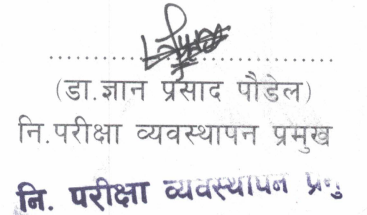 (डा.ज्ञान प्रसाद पौडेल)
नि.परीक्षा व्यवस्थापन प्रमुख
नि. परीक्षा व्यवस्थापन